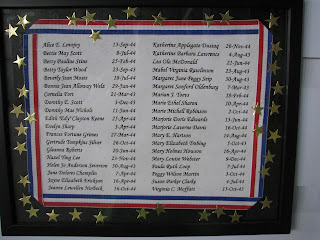 Alice E. Lovejoy 13-Sep-44
Bettie Mae Scott 8-Jul-44
Betty Pauline Stine 25-Feb-44
Betty Taylor Wood 23-Sep-43
Beverly Jean Moses 18-Jul-44
Bonnie Jean Alloway Welz 29-Jun-44
Cornelia Fort 21-Mar-43
Dorothy E. Scott 3-Dec-43
Dorothy Mae Nichols 11-Jun-44
Edith "Edy" Clayton Keene 25-Apr-44
Evelyn Sharp 3-Apr-44
Frances Fortune Grimes 27-Mar-44
Gertrude Tompkins Silver 26-Oct-44
Gleanna Roberts 20-Jun-44
Hazel Ying Lee 25-Nov-44
Helen Jo Anderson Severson 30-Aug-43
Jane Dolores Champlin 7-Jun-43
Jayne Elizabeth Erickson 16-Apr-44
Jeanne Lewellen Norbeck 16-Oct-44
Katherine Applegate Dussaq 26-Nov-44
Katherine Barbara Lawrence 4-Aug-43
Lea Ola McDonald 21-Jun-44
Mabel Virginia Rawlinson 23-Aug-43
Margaret June Peggy Seip 30-Aug-43
Margaret Sanford Oldenburg 7-Mar-43
Marian J. Toevs 18-Feb-44
Marie Ethel Sharon 10-Apr-44
Marie Mitchell Robinson 2-Oct-44
Marjorie Doris Edwards 13-Jun-44
Marjorie Laverne Davis 16-Oct-44
Mary E. Hartson 14-Aug-44
Mary Elizabeth Trebing 7-Oct-43
Mary Holmes Howson 16-Apr-44
Mary Louise Webster 9-Dec-44
Paula Ruth Loop 7-Jul-44
Peggy Wilson Martin 3-Oct-44
Susan Parker Clarke 4-Jul-44
Virginia C. Moffatt 15-Oct-43